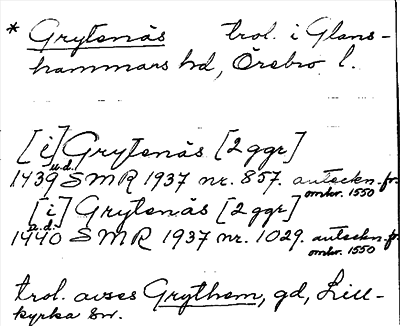 * Grytenäs trol. i Glans-
hammars hd, Örebro l.
[i] Grytenäs [2 ggr]
u.d.
1439 SMR 1937 nr. 857. anteckn. fr.
omkr. 1550
[i] Grytenäs [2 ggr]
u.d.
1440 SMR 1937 nr. 1029. anteckn. fr.
omkr. 1550
trol. avses Grythem, gd, Lill-
kyrka sn.